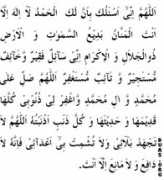 اَللّٰهُمَّ اِنِّیْ اَسْئَلُكَ بِاَنَّ لَكَ الْحَمْدُ لَا اِلٰهَ اِلَّا
اَنْتَ الْمَنَّانُ بَدِیْعُ السَّمٰوٰتِ وَ الْاَرْضِ
ذُوالْجَلَالِ وَ الْاِكْرَامِ اِنِّیْ سَآئِلٌ فَقِیْرٌ وَ خَآئِفٌ
مُسْتَجِیْرٌ وَ تَآئِبٌ مُسْتَغْفِرٌ اَللّٰهُمَّ صَلِّ عَلٰی
مُحَمَّدٍ وَ اٰلِ مُحَمَّدٍ وَاغْفِرْ لِیْ ذُنُوْبِیْ كُلَّهَا
قَدِیْمَهَا وَ حَدِیْثَهَا وَ كُلَّ ذَنْبٍ اَذْنَبْتُهُ اَللّٰهُمَّ لَا
تَجْهَدْ بَلَآئِیْ وَلَا تُشْمِتْ بِیْ اَعْدَآئِیْ فَاِنَّهُ لَا
دَافِعَ وَ لَا مَانِعَ اِلَّا اَنْتَ.